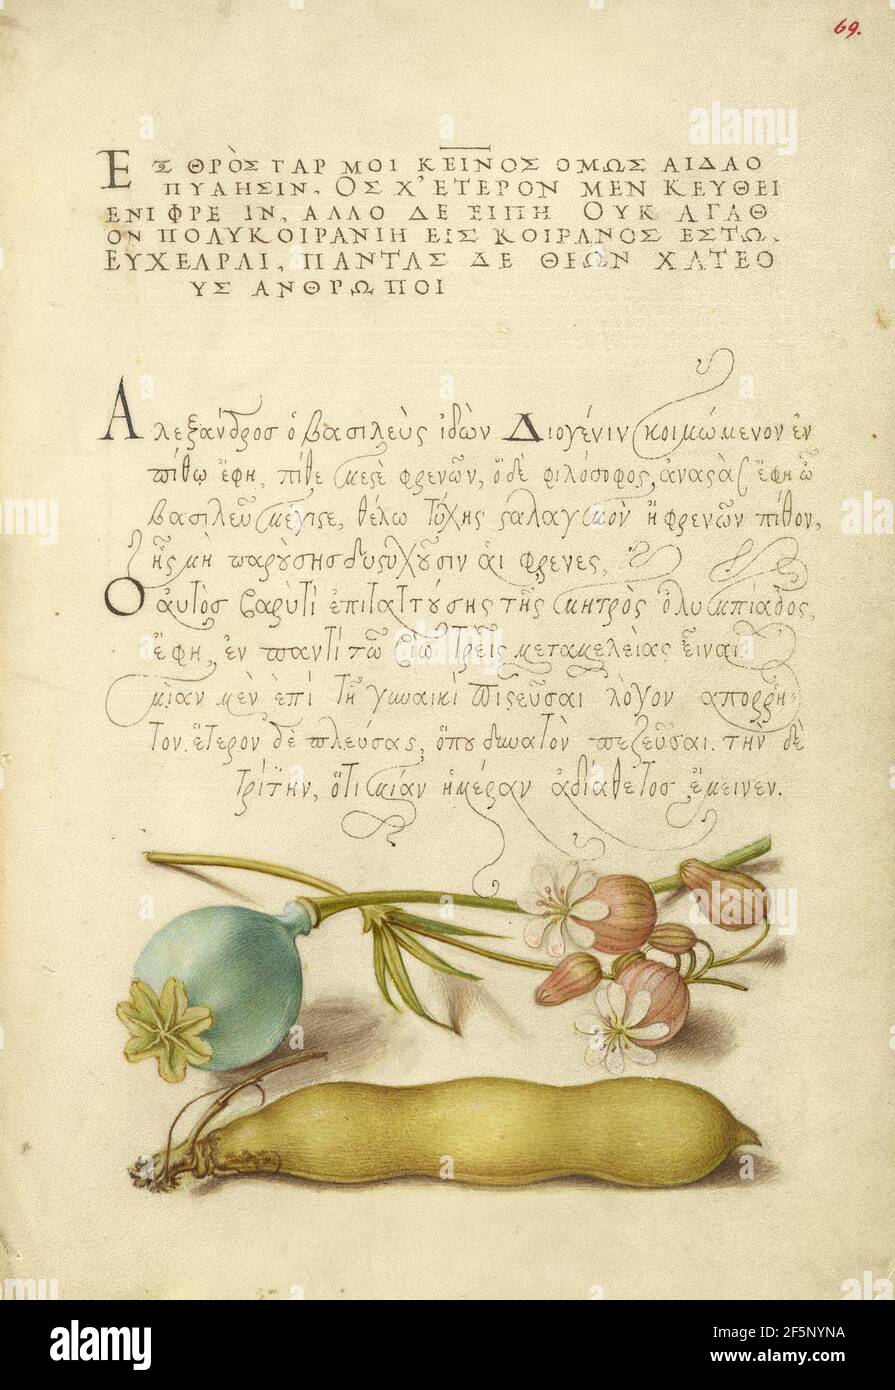 69.
ΕΣ ΘΡῸΣ ΓΑΡ ΜΟΙ ΚΕΙΝΟΣ ΟΜΩΣ ΑΙΔΑΟ
ΠΥΛΗΣΙΝ. ΟΣ Χ' ΕΤΕΡΟΝ ΜΕΝ ΚΕΥΘΕΙ
ΕΝΙ ΦΡΕ ΙΝ, ΑΛΛΟ ΔΕ ΕΙΠΗ ΟΥΚ ΑΓΑΘ
ΟΝ ΠΟΛΥΚΟΙΡΑΝΙΗ ΕΙΣ ΚΟΙΡΑΝΟΣ ΕΣΤΩ.
ΕΥΧΕΑΡΑΙ, ΠΑΝΤΑΣ ΔΕ ΘΕΩΝ ΧΑΤΕΟ
ΥΣ ΑΝΘΡΩΠΟΙ
Αλεξάνδροσ ὁ βασιλεὺς ἰδὼν Διογένιν κοιμώμενον ἐν
πίθῳ ἔφη, πίθε μεςὲ φρενῶν, ὁ δὲ φιλόσοφος, ἀναςὰς ἔφη ὦ
βασιλεῦ μέγιςε, θέλω τύχης ςαλαγμὸν ἢ φρενῶν πίθον,
ἧς μὴ παρὺσης δυςυχῦσιν ἁι φρενες,
Ὁ αυτὸς ἐπιταττύσης τῆς μητρὸς ὀλυμπιάδος,
ἔφη, ἐν παντὶ τῷ βίω τρεῖς μεταμελείας εἶναι
μίαν μὲν ἐπὶ τῇ γυναικὶ πιςεῦσαι λόγον απορρη-
τον. ἕτερον δὲ πλεύσας, ὅπυ δυνατὸν πεζεῦσαι. τὴν δὲ
τρίτην, ὅτι μίαν ἡμέραν ἀδιάθετοσ ἔμεινεν.
alamy
Image ID: 2F5NYNA
www.alamy.com